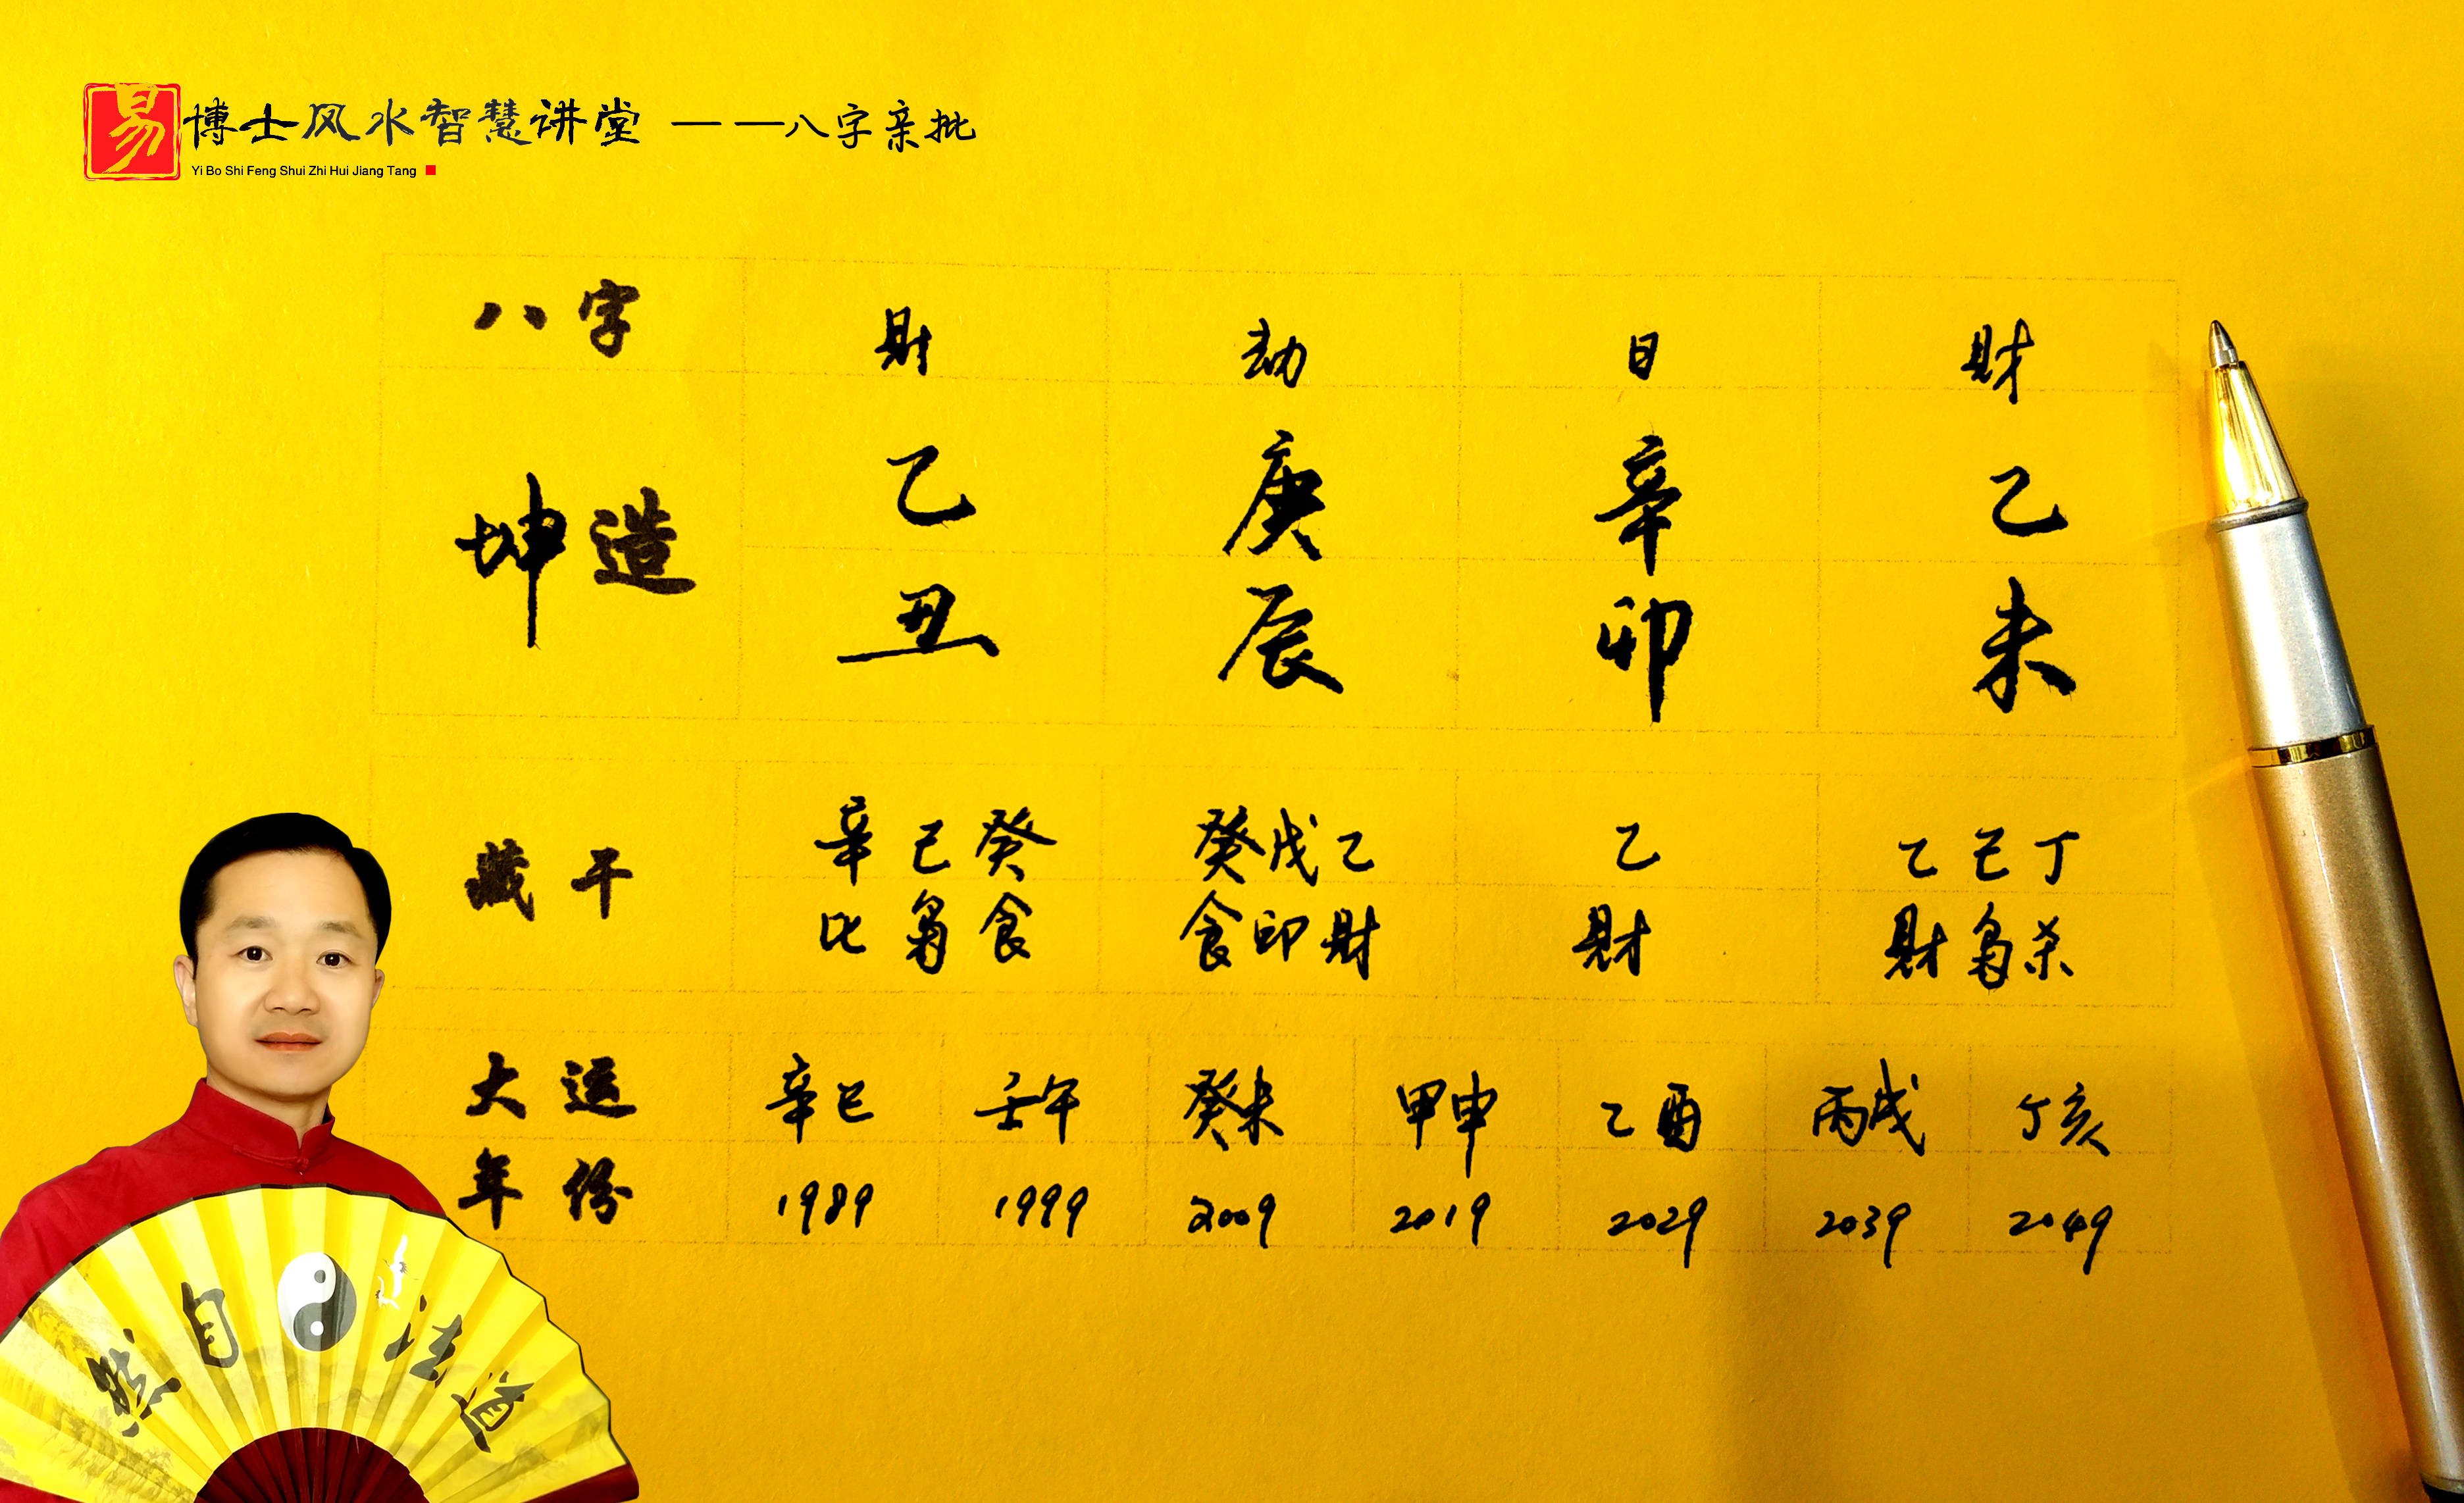 易博士风水智慧讲堂 ——八字亲批
Yi Bo Shi Feng Shui Zhi Hui Jiang Tang
八字 财 劫 日 财
坤造 乙 庚 辛 乙
丑 辰 卯 未
藏干 辛 己 癸 癸 戊 乙 乙 乙 己 丁
比 枭 食 食 印 财 财 财 枭 杀
大运 辛巳 壬午 癸未 甲申 乙酉 丙戌 丁亥
年份 1989 1999 2009 2019 2029 2039 2049
然自法道